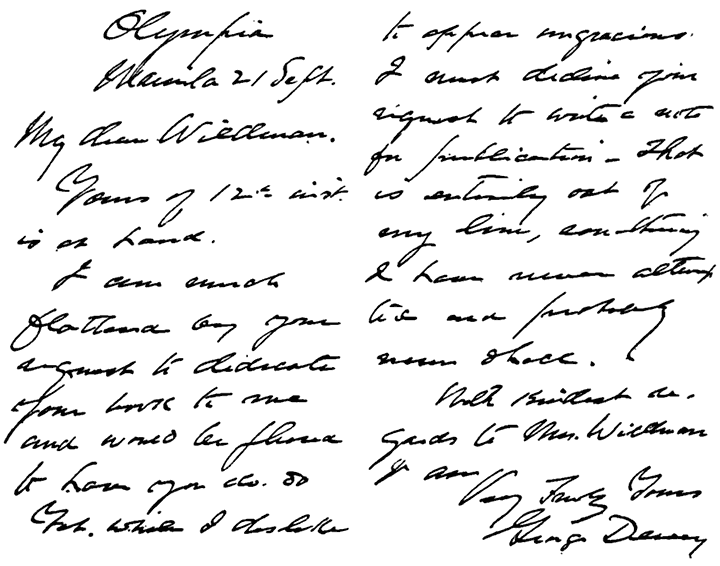 Olympia
Manila 21 Sept.
My dear Wildman.
Yours of 12th inst.
is at hand.
I am much
flattered by your
request to dedicate
your book to me
and would be pleased
to have you do so
Yet, while I dislike
to appear ungracious.
I must decline your
request to write a note
for publication - That
is entirely out of
my line, something
I have never attemp
ted and probably
never shall.
With kindest re-
gards to Mrs. Wildman
I am
Very Truly Yours
George Dewey